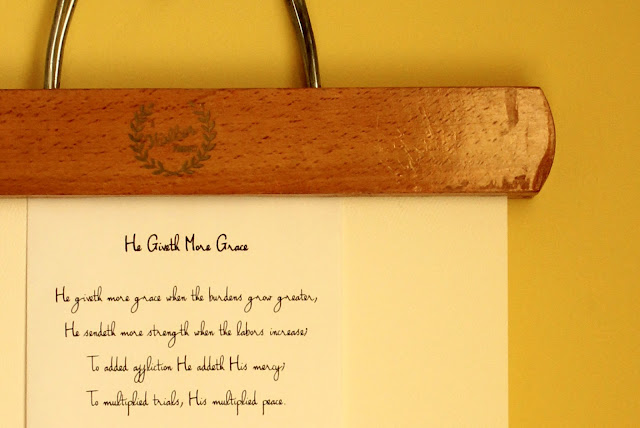 He Giveth More Grace
He giveth more grace when the burdens grow greater,
He sendeth more strength when the labors increase;
To added affliction He addeth His mercy;
To multiplied trials, His multiplied peace.